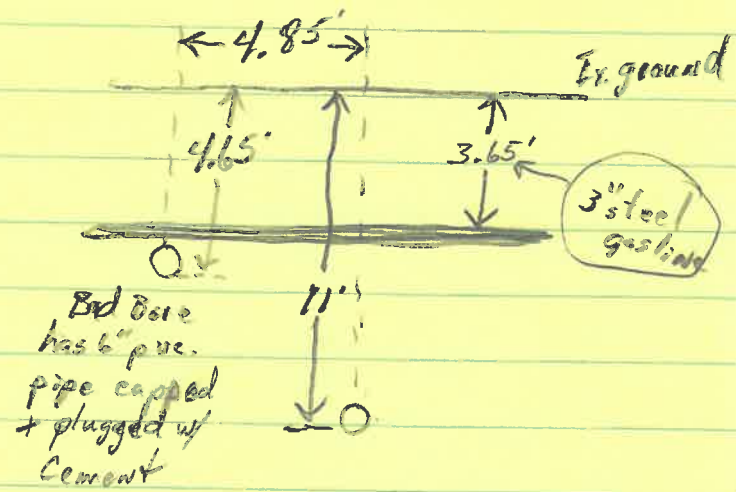 4.85'
Ex. ground
4.65'
3.65'
3" steel
gasline
11'
Bad Bore
has 6" pvc.
pipe capped
+ plugged w/
Cement